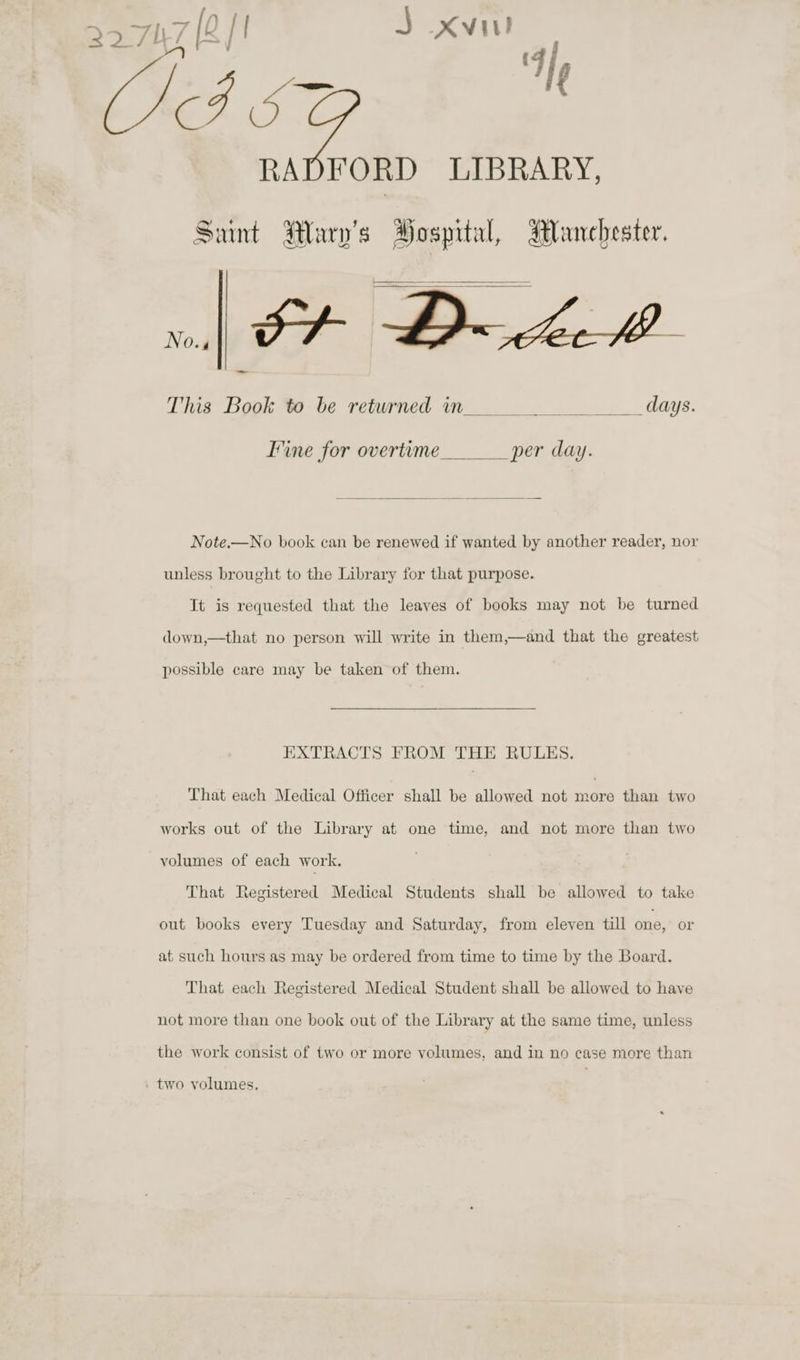 22747/2/1
J XVIII
RADFORD LIBRARY,
Saint Mary's Hospital, Manchester.
No.,
This Book to be returned in________________days.
Fine for overtime______per day.
Note.—No book can be renewed if wanted by another reader, nor
unless brought to the Library for that purpose.
It is requested that the leaves of books may not be turned
down,—that no person will write in them,—and that the greatest
possible care may be taken of them.
EXTRACTS FROM THE RULES.
That each Medical Officer shall be allowed not more than two
works out of the Library at one time, and not more than two
volumes of each work.
That Registered Medical Students shall be allowed to take
out books every Tuesday and Saturday, from eleven till one, or
at such hours as may be ordered from time to time by the Board.
That each Registered Medical Student shall be allowed to have
not more than one book out of the Library at the same time, unless
the work consist of two or more volumes, and in no case more than
two volumes.